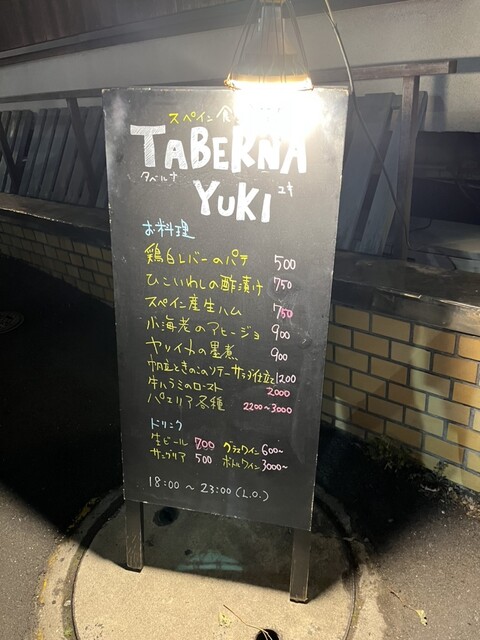 スペイン 食
TABERNA
タベルナ
YUKI
ユキ
お料理
鶏白レバーのパテ 500
ひこいわしの酢漬け 750
スペイン産生ハム 750
小海老のアヒージョ 900
ヤリイカの墨煮 900
帆立ときのこのソテーサラダ仕立て 1200
牛ハラミのロースト 2000
パエリア各種 2200〜3000
ドリンク
生ビール 700 グラスワイン 600〜
サングリア 500 ボトルワイン 3000〜
18:00 〜 23:00 (L.O.)